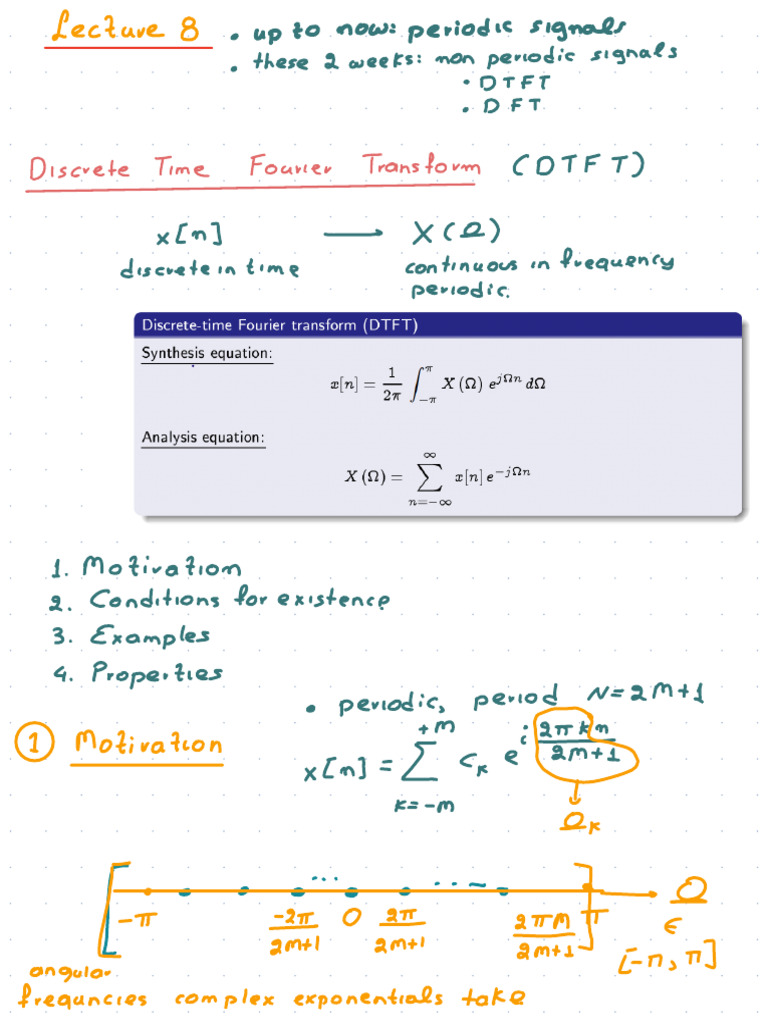 Lecture 8
• up to now: periodic signals
• these 2 weeks: non periodic signals
• DTFT
• DFT
Discrete Time Fourier Transform (DTFT)
x[n] → X(Ω)
discrete in time
continuous in frequency
periodic.
Discrete-time Fourier transform (DTFT)
Synthesis equation:
x[n] = 1/2π ∫_{-π}^{π} X(Ω) e^{jΩn} dΩ
Analysis equation:
X(Ω) = ∑_{n=-∞}^{∞} x[n] e^{-jΩn}
1. Motivation
2. Conditions for existence
3. Examples
4. Properties
• periodic, period N=2M+1
① Motivation
x[n] = ∑_{k=-M}^{+M} c_k e^{i 2πkn/2M+1}
Ω_k
... ...
-π -2π/2M+1 0 2π/2M+1 2πM/2M+1 π Ω
∈
[-π, π]
angular
frequncies complex exponentials take